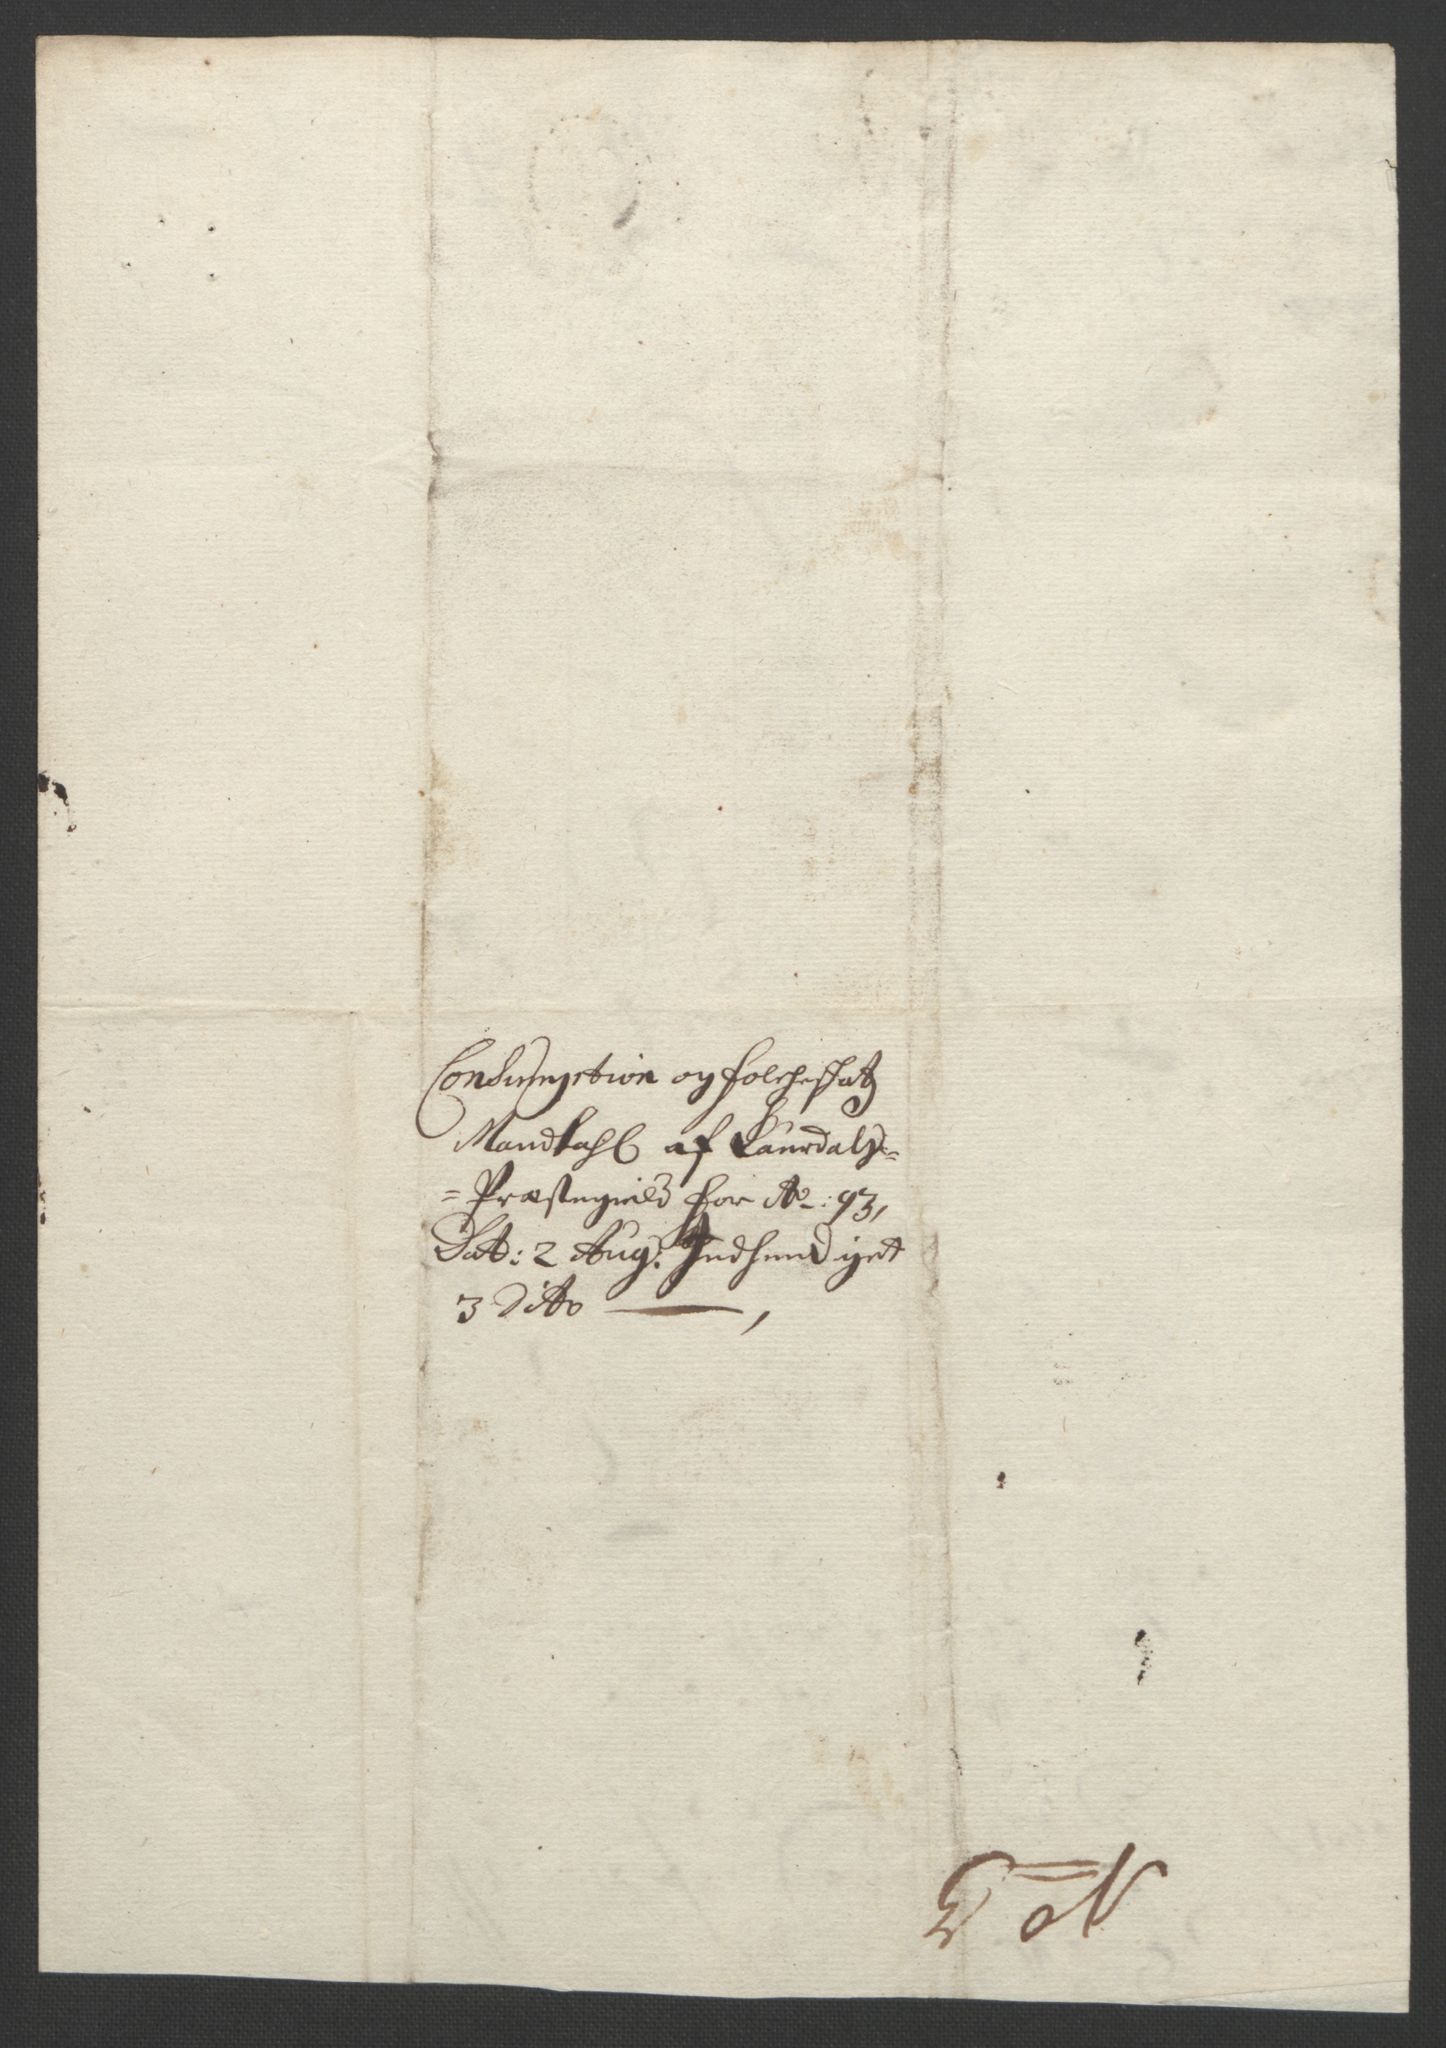 Consumption og folcheskatz
Mandtahl af Laurdalz=
=Præstegield for Ao: 93,
Dat: 2 Aug: Indhendiget
3 Dito ——,
No 3